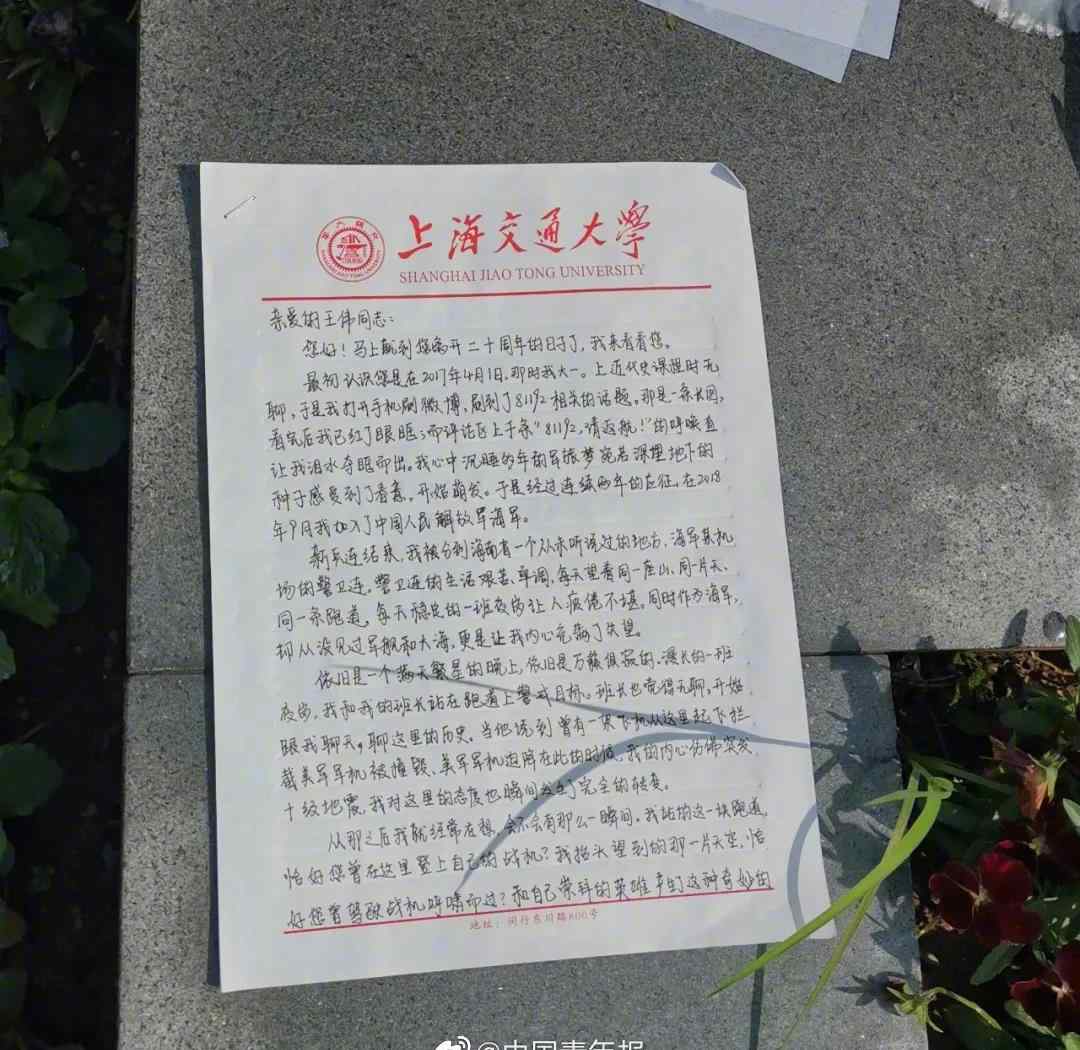 上海交通大學
SHANGHAI JIAO TONG UNIVERSITY
亲爱的王伟同志：
您好！马上就到您离开二十周年的日子了，我来看看您。
最初认识您是在2017年4月1日，那时我大一。上近代史课程时无
聊，于是我打开手机刷微博，刷到了81192相关的话题。那是一条长图，
看完后我已红了眼眶；而评论区上千条“81192，请返航！”的呼唤直
让我泪水夺眶而出。我心中沉睡多年的军旅梦宛若深埋地下的
种子感受到了春意，开始萌发。于是经过连续两年的应征，在2018
年9月我加入了中国人民解放军海军。
新兵连结束，我被分到海南省一个从未听说过的地方，海军某机
场的警卫连。警卫连的生活艰苦、单调，每天望着同一座山、同一片天、
同一条跑道，每天稳定的一班夜岗让人疲倦不堪。同时作为海军，
却从没见过军舰和大海，更是让我内心充满了失望。
依旧是一个满天繁星的晚上，依旧是万籁俱寂的、漫长的一班
夜岗，我和我的班长站在跑道上警戒目标。班长也觉得无聊，开始
跟我聊天，聊这里的历史。当他说到曾有一架飞机从这里起飞拦
截美军军机被撞毁、美军军机迫降在此的时候，我的内心仿佛突发
十级地震，我对这里的态度也瞬间发生了完全的转变。
从那之后我就经常在想，会不会有那么一瞬间，我站的这一块跑道，
恰好您曾在这里登上自己的战机？我抬头望到的那一片天空，恰
好您曾驾驶战机呼啸而过？和自己崇拜的英雄产生这种奇妙的
地址：闵行东川路800号
@中国青年报